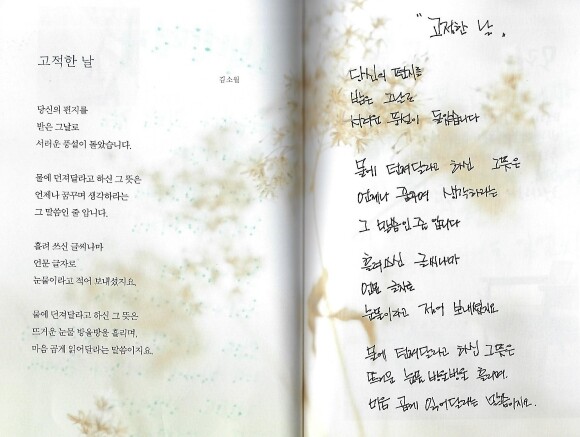 고적한 날
김소월
당신의 편지를
받은 그날로
서러운 풍설이 돌았습니다.
물에 던져달라고 하신 그 뜻은
언제나 꿈꾸며 생각하라는
그 말씀인 줄 압니다.
흘려 쓰신 글씨나마
언문 글자로
눈물이라고 적어 보내셨지요.
물에 던져달라고 하신 그 뜻은
뜨거운 눈물 방울방울 흘리며,
마음 곱게 읽어달라는 말씀이지요.
"고적한 날,
당신의 편지를
받은 그날로
서러운 풍설이 돌았습니다
물에 던져달라고 하신 그뜻은
언제나 꿈꾸며 생각하라는
그 말씀인줄 압니다
흘려쓰신 글씨나마
언문 글자로
눈물이라고 적어 보내셨지요
물에 던져달라고 하신 그뜻은
뜨거운 눈물 방울방울 흘리며.
마음 곱게 읽어달라는 말씀이지요.